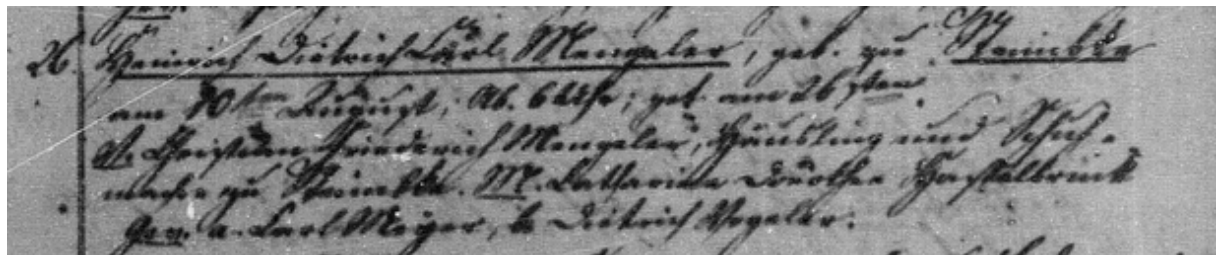 26. Heinrich Dietrich Carl Mengeler, geb. zu Steimbke
am 20sten August, Ab. 6 Uhr; get. am 26sten.
V. Christian Friederich Mengeler, Häusling und Schuh-
macher zu Steimbke. M. Catharine Dorothee Hastelbrink
Gev. a. Carl Meyer, b. Dietrich Vogeler.